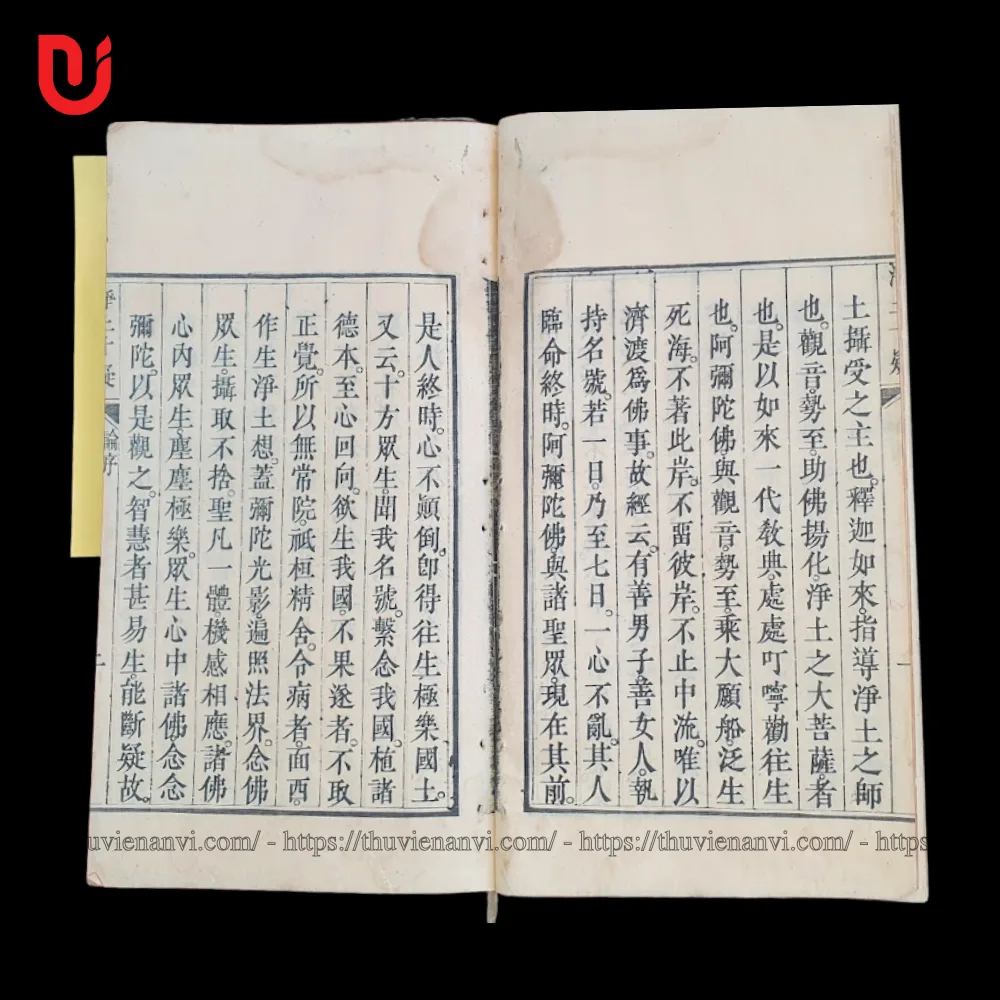 土攝受之主也。釋迦如來。指導淨土之師
也。觀音。勢至。助佛揚化。淨土之大菩薩者
也。是以如來一代敎典。處處叮嚀勸往生
也。阿彌陀佛。與觀音。勢至。乘大願船。泛生
死海。不著此岸。不畱彼岸。不止中流。唯以
濟渡爲佛事。故經云。有善男子。善女人。執
持名號。若一日。乃至七日。一心不亂。其人
臨命終時。阿彌陀佛。與諸聖眾。現在其前。
是人終時。心不顚倒。卽得往生極樂國土。
又云。十方眾生。聞我名號。繫念我國。植諸
德本。至心回向。欲生我國。不果遂者。不取
正覺。所以無常院。祗桓精舍。令病者。面西。
作生淨土想。蓋彌陀光影。遍照法界。念佛
眾生。攝取不捨。聖凡一體。機感相應。諸佛
心內眾生。塵塵極樂。眾生心中諸佛。念念
彌陀。以是觀之。智慧者甚易生。能斷疑故。
淨土十疑 論序
https://thuvienanvi.com/ - https://thuvienanvi.com/ - https://thuvienanvi.com/